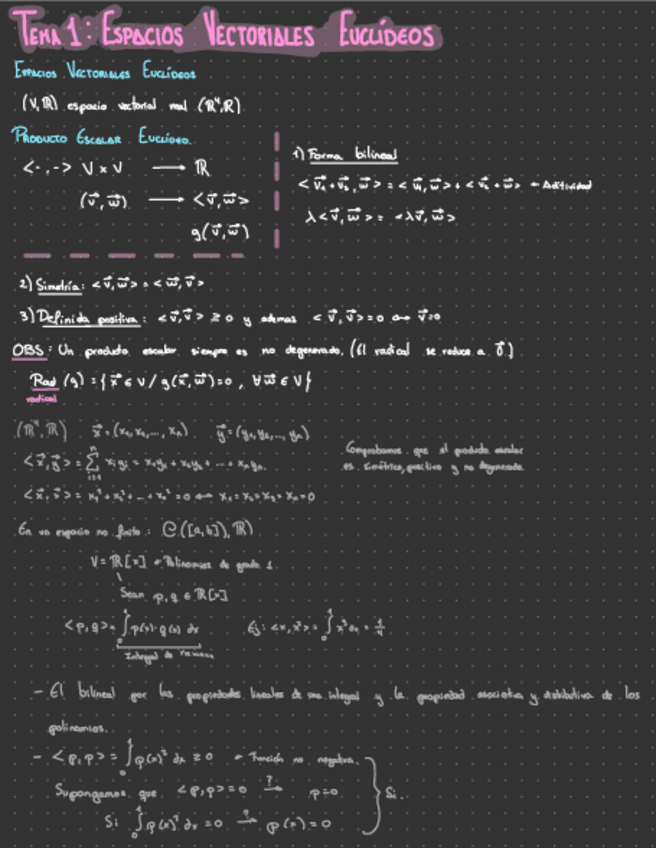 TEMA 1: ESPACIOS VECTORIALES EUCLÍDEOS
ESPACIOS VECTORIALES EUCLÍDEOS
(V,ℝ) espacio vectorial real (ℝⁿ,ℝ)
PRODUCTO ESCALAR EUCLÍDEO.
<-,-> V x V → ℝ
(v⃗,w⃗) → <v⃗,w⃗>
g(v⃗,w⃗)
1) Forma bilineal
<v⃗₁+v⃗₂,w⃗> = <v⃗₁,w⃗> + <v⃗₂+w⃗> Aditividad
λ<v⃗,w⃗> = <λv⃗,w⃗>
2) Simetría: <v⃗,w⃗> = <w⃗,v⃗>
3) Definida positiva: <v⃗,v⃗> ≥ 0 y ademas <v⃗,v⃗> = 0 ⇔ v⃗=0
OBS: Un producto escalar siempre es no degenerado. (El radical se reduce a 0⃗.)
Rad (g) = {x⃗ ∈ V / g(x⃗,w⃗)=0, ∀w⃗ ∈ V}
radical
(ℝⁿ,ℝ) x⃗ = (x₁,x₂,...,xₙ) y⃗ = (y₁,y₂,...,yₙ)
<x⃗,y⃗> = ∑ᵢ₌₁ⁿ xᵢyᵢ = x₁y₁ + x₂y₂ + ... + xₙyₙ.
Comprobamos que el producto escalar
es simétrico, positivo y no degenerado
<x⃗,x⃗> = x₁² + x₂² + ... + xₙ² = 0 ⇔ x₁=x₂=x₃=xₙ=0
En un espacio no finito: C([a,b]),ℝ)
V = ℝ[x] Polinomios de grado 1
Sean p,q ∈ ℝ[x]
<p,q> = ∫₀¹ p(x)·q(x) dx Ej: <x,x²> = ∫₀¹ x³dx = 1/4
Integral de riemann
- El bilineal por las propiedades lineales de una integral y la propiedad asociativa y distributiva de los
polinomios.
- <p,p> = ∫₀¹ p(x)² dx ≥ 0 Función no negativa.
Supongamos que <p,p> = 0 →? p=0
Si.
Si ∫₀¹ p(x)² dx = 0 →? p(x) = 0